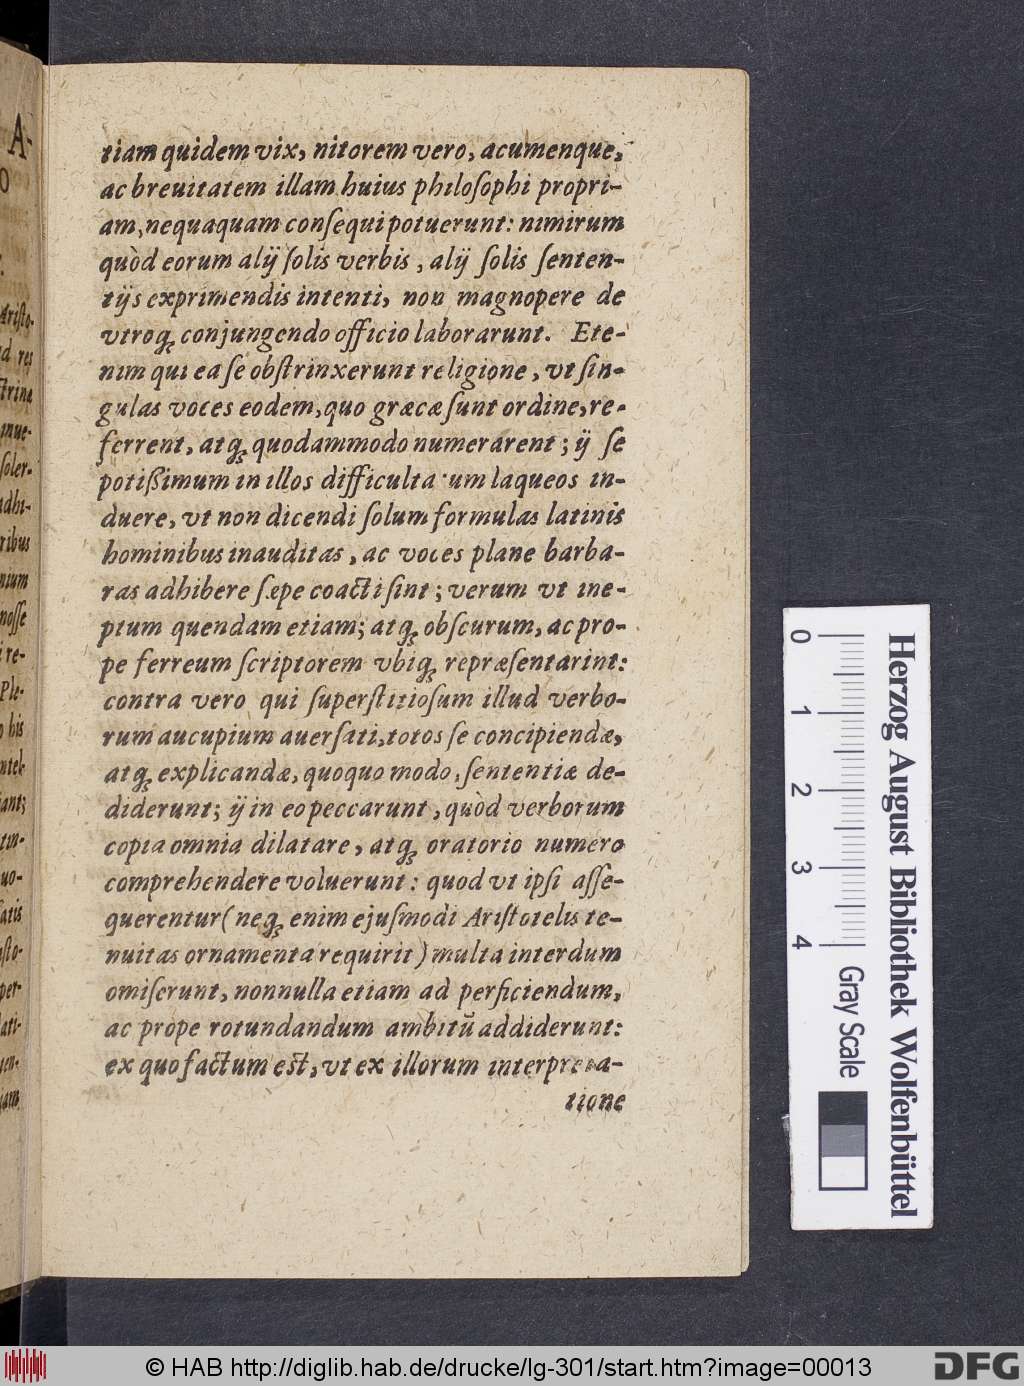 tiam quidem vix, nitorem vero, acumenque,
ac breuitatem illam huius philoſophi propri-
am, nequaquam conſequi potuerunt: nimirum
quòd eorum alij ſolis verbis, alij ſolis ſenten-
tijs exprimendis intenti, non magnopere de
vtroq́ꝫ conjungendo officio laborarunt. Ete-
nim qui ea ſe obſtrinxerunt religione, vt ſin-
gulas voces eodem, quo græcæ ſunt ordine, re-
ferrent, atqꝫ quodammodo numerarent; ij ſe
potißimum in illos difficultatum laqueos in-
duere, vt non dicendi ſolum formulas latinis
hominibus inauditas, ac voces plane barba-
ras adhibere ſæpe coacti ſint; verum vt ine-
ptum quendam etiam; atqꝫ obſcurum, ac pro-
pe ferreum ſcriptorem vbiqꝫ repræſentarint:
contra vero qui ſuperſtitioſum illud verbo-
rum aucupium auerſati, totos ſe concipiendæ,
atqꝫ explicandæ, quoquo modo, ſententiæ de-
diderunt; ij in eo peccarunt, quòd verborum
copia omnia dilatare, atqꝫ oratorio numero
comprehendere voluerunt: quod vt ipſi aſſe-
querentur (neqꝫ enim ejuſmodi Ariſtotelis te-
nuitas ornamenta requirit) multa interdum
omiſerunt, nonnulla etiam ad perficiendum,
ac prope rotundandum ambitũ addiderunt:
ex quo factum eſt, vt ex illorum interpreta-
tione
A-
O
Ariſto-
res
ctrina
inue-
ſoler-
adhi-
ribus
nium
noſſe
i re-
Ple-
his
ntel-
iant;
uo-
ſatis
per-
lati-
uam
0 1 2 3 4
Gray Scale
Herzog August Bibliothek Wolfenbüttel
© HAB http://diglib.hab.de/drucke/lg-301/start.htm?image=00013
DFG